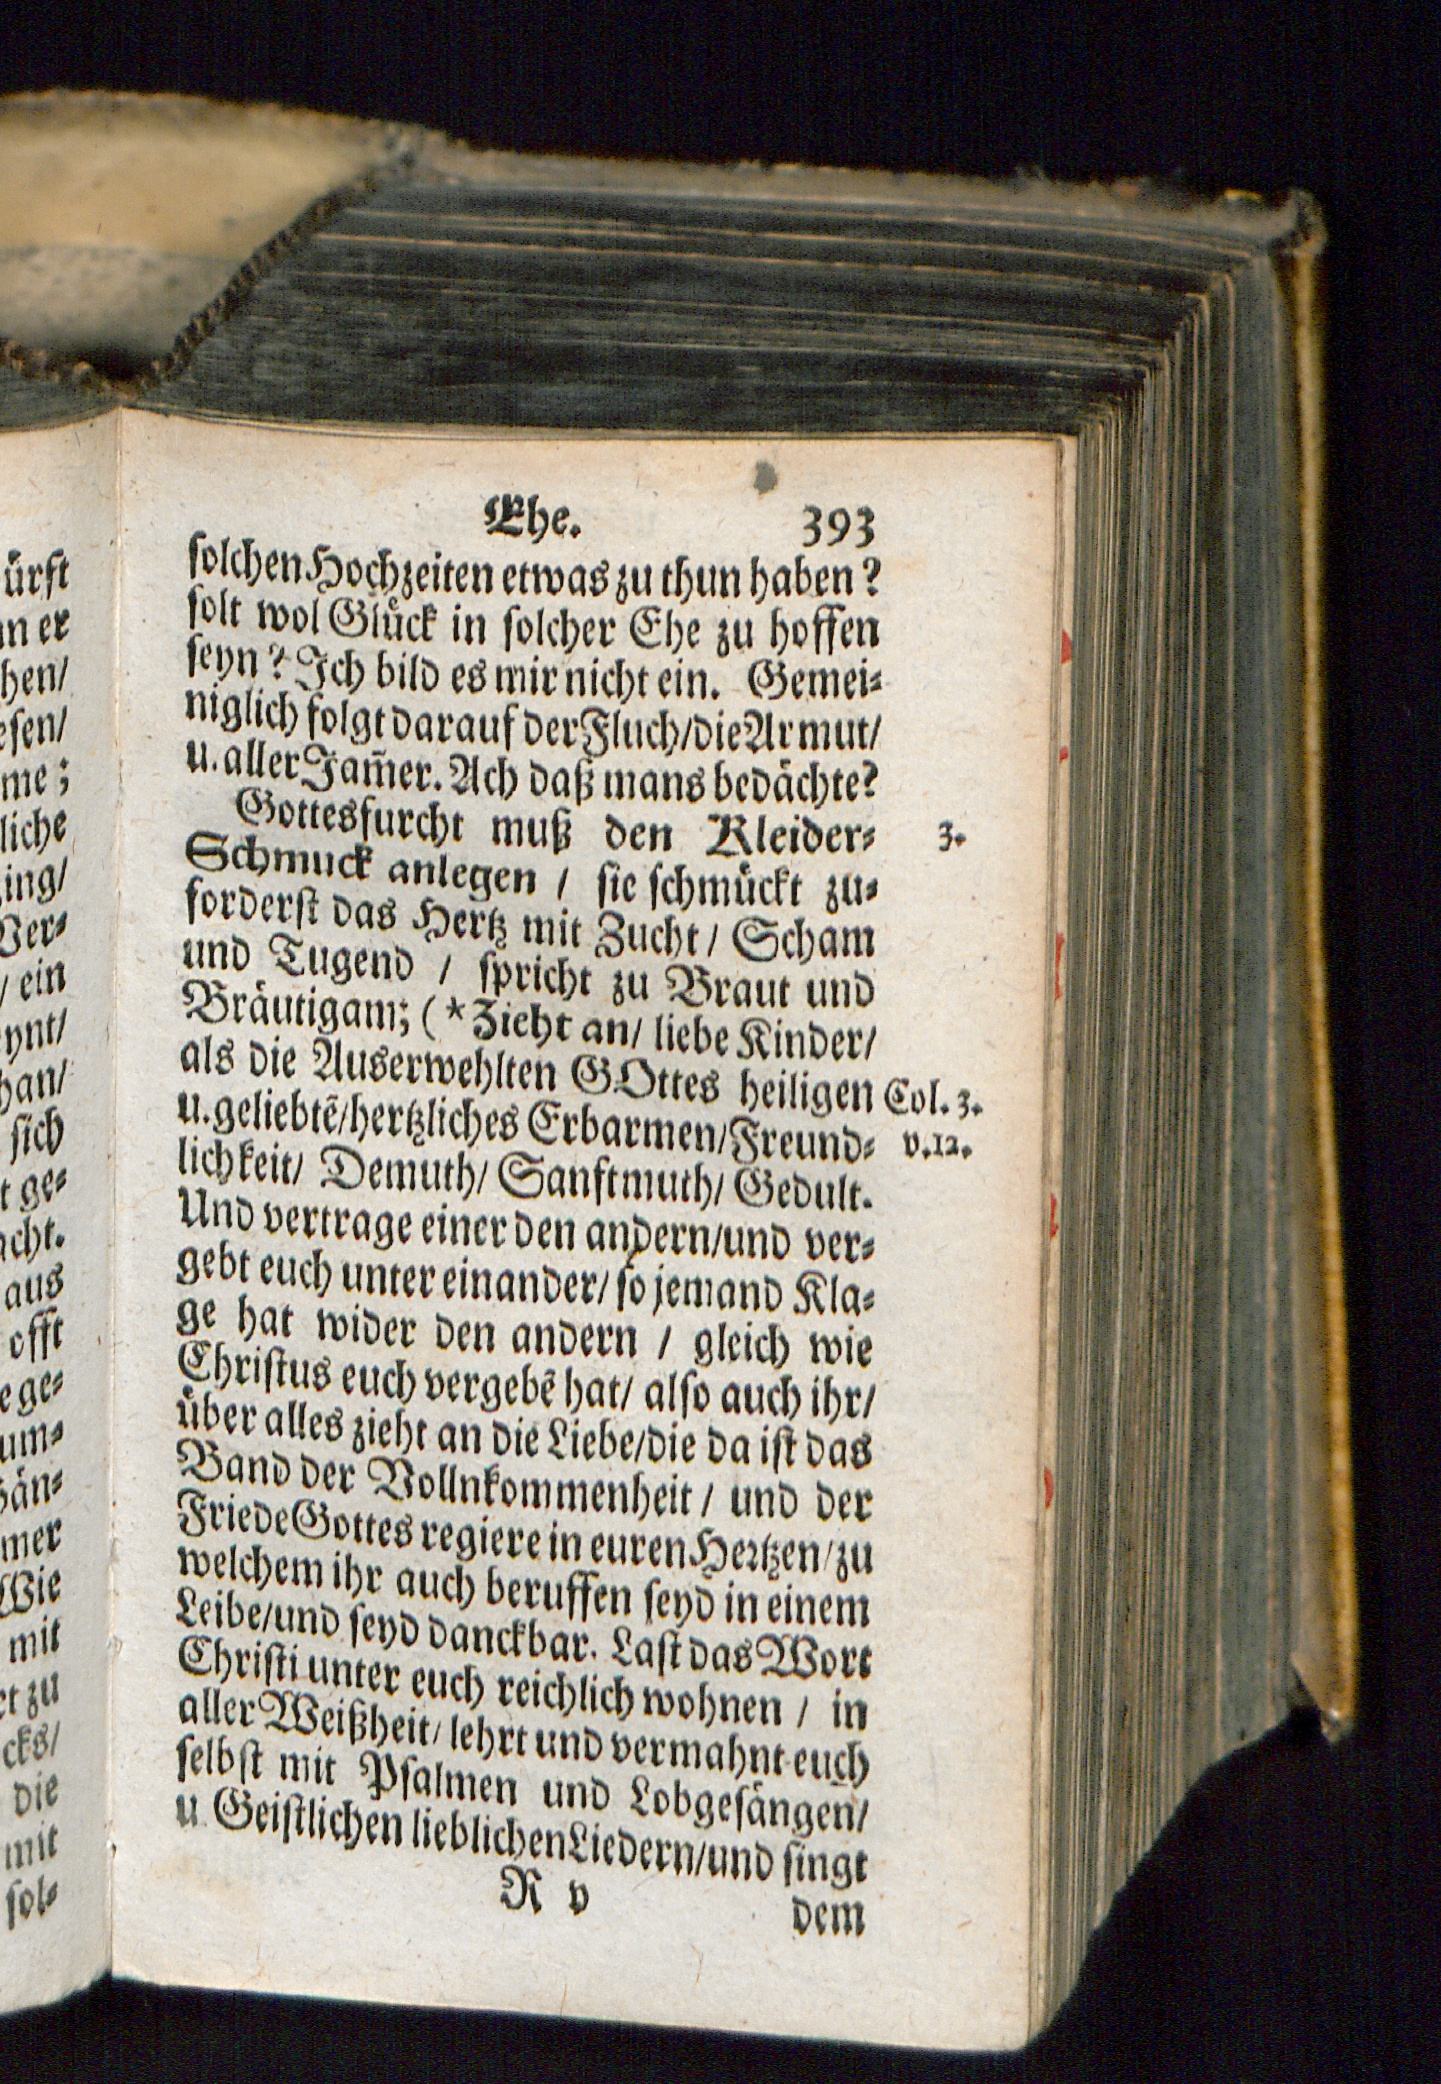 Ehe. 393
solchen Hochzeiten etwas zu thun haben?
solt wol Glück in solcher Ehe zu hoffen
seyn? Ich bild es mir nicht ein. Gemei-
niglich folgt darauf der Fluch/die Armut/
u. aller Jam̃er. Ach daß mans bedächte?
Gottesfurcht muß den Kleider- 3.
Schmuck anlegen / sie schmückt zu-
forderst das Hertz mit Zucht / Scham
und Tugend / spricht zu Braut und
Bräutigam; (*Zieht an/ liebe Kinder/
als die Auserwehlten GOttes heiligen Col. 3.
u. geliebtẽ/hertzliches Erbarmen/Freund- v.12.
lichkeit/ Demuth/ Sanftmuth/ Gedult.
Und vertrage einer den andern/und ver-
gebt euch unter einander/ so jemand Kla-
ge hat wider den andern / gleich wie
Christus euch vergebẽ hat/ also auch ihr/
über alles zieht an die Liebe/die da ist das
Band der Vollnkommenheit / und der
Friede Gottes regiere in euren Hertzen/zu
welchem ihr auch beruffen seyd in einem
Leibe/und seyd danckbar. Last das Wort
Christi unter euch reichlich wohnen / in
aller Weißheit/ lehrt und vermahnt euch
selbst mit Psalmen und Lobgesängen/
u Geistlichen lieblichen Liedern/und singt
R v dem
ürft
hen/
esen/
me;
liche
ing/
Ver-
/ ein
ynt/
han/
sich
t ge-
acht.
aus
offt
e ge-
um-
mer
Wie
mit
rt zu
cks/
die
mit
sol-